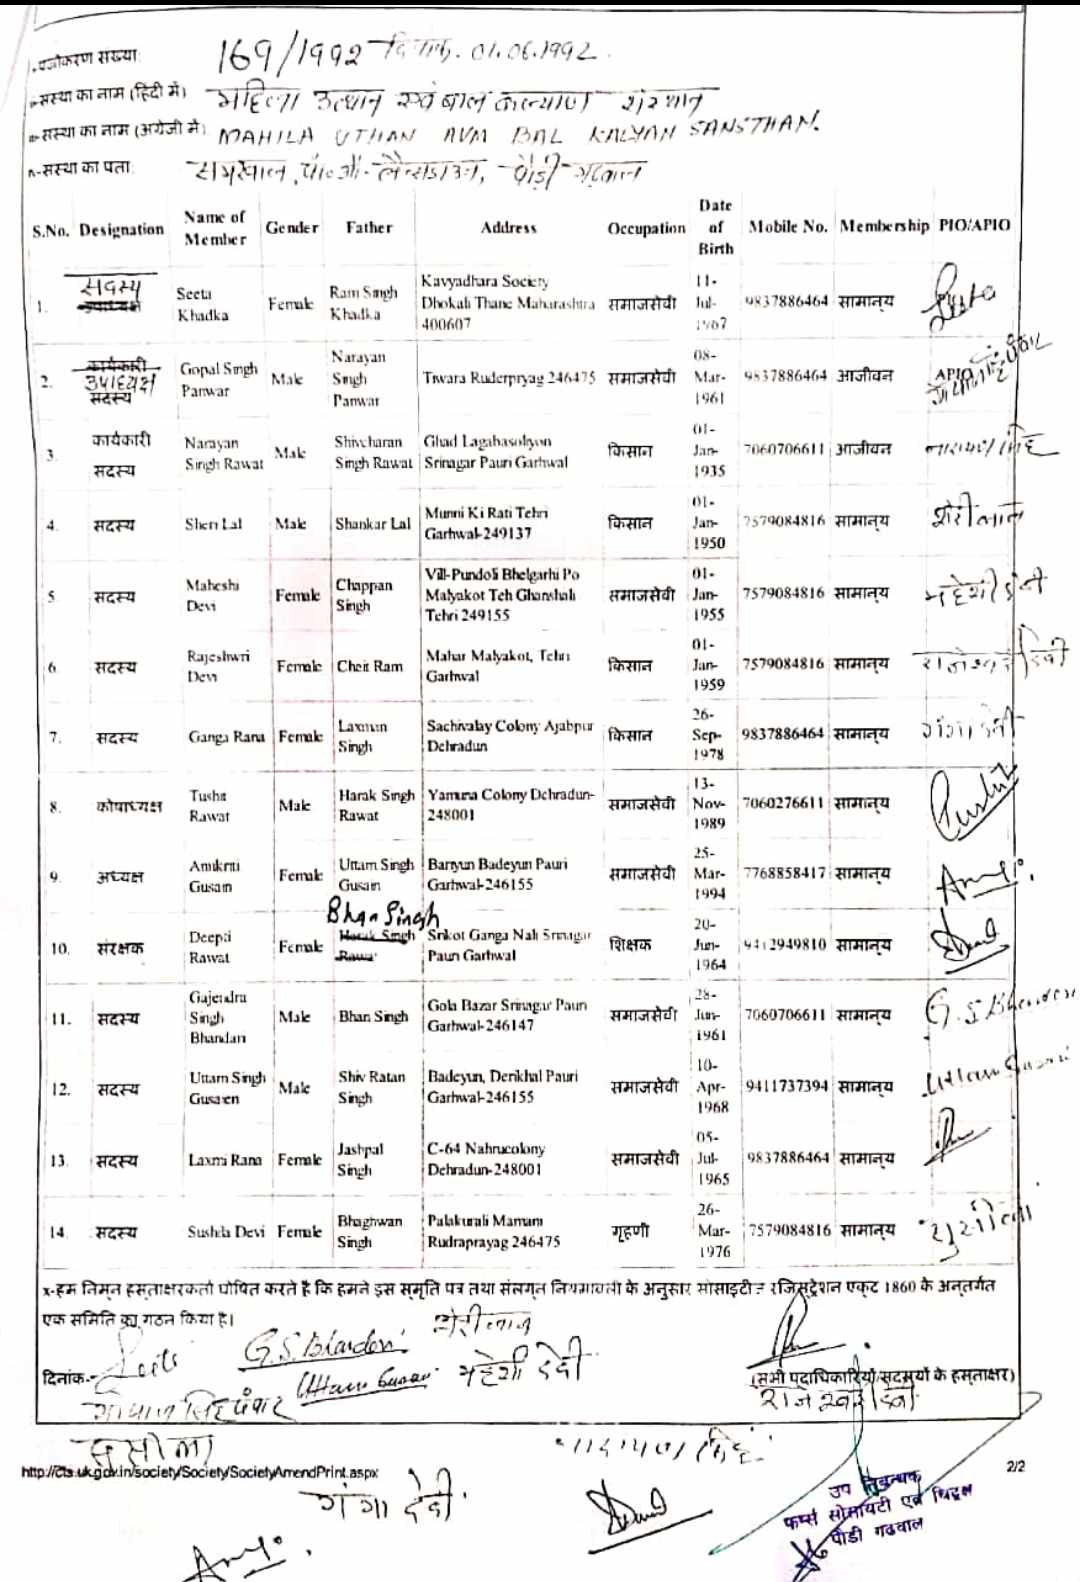 पंजीकरण संख्या: 169/1992 दिनांक. 01.06.1992.
संस्था का नाम (हिंदी में) महिला उत्थान एवं बाल कल्याण संस्थान
संस्था का नाम (अंग्रेजी में) MAHILA UTHAN AVM BAL KALYAN SANSTHAN.
संस्था का पता: पौ०ओ०-लैन्सडाउन, पौड़ी गढ़वाल
S.No. Designation Name of Member Gender Father Address Occupation Date of Birth Mobile No. Membership PIO/APIO
1. सदस्य Seeta Khadka Female Ram Singh Khadka Kavyadhara Society Dhokali Thane Maharashtra 400607 समाजसेवी 11-Jul-1967 9837886464 सामान्य
2. कार्यकारी उपाध्यक्ष सदस्य Gopal Singh Panwar Male Narayan Singh Panwar Tiwara Ruderpryag 246475 समाजसेवी 08-Mar-1961 9837886464 आजीवन APIO
3. कार्यकारी सदस्य Narayan Singh Rawat Male Shivcharan Singh Rawat Ghad Lagabasoliyon Srinagar Pauri Garhwal किसान 01-Jan-1935 7060706611 आजीवन नारायण सिंह
4. सदस्य Sheri Lal Male Shankar Lal Munni Ki Rati Tehri Garhwal-249137 किसान 01-Jan-1950 7579084816 सामान्य शेरी लाल
5. सदस्य Maheshi Devi Female Chappan Singh Vill-Pundoli Bhelgarhi Po Malyakot Teh Ghanshali Tehri 249155 समाजसेवी 01-Jan-1955 7579084816 सामान्य महेशी देवी
6. सदस्य Rajeshwri Devi Female Cheit Ram Mahar Malyakot, Tehri Garhwal किसान 01-Jan-1959 7579084816 सामान्य राजेश्वरी देवी
7. सदस्य Ganga Rana Female Laxman Singh Sachivalay Colony Ajabpur Dehradun किसान 26-Sep-1978 9837886464 सामान्य गंगा देवी
8. कोषाध्यक्ष Tushar Rawat Male Harak Singh Rawat Yamuna Colony Dehradun-248001 समाजसेवी 13-Nov-1989 7060276611 सामान्य
9. अध्यक्ष Amikriti Gusain Female Uttam Singh Gusain Bariyun Badeyun Pauri Garhwal-246155 समाजसेवी 25-Mar-1994 7768858417 सामान्य
10. संरक्षक Deepti Rawat Female Bhan Singh Harak Singh Rawat Srikot Ganga Nali Srinagar Pauri Garhwal शिक्षक 20-Jun-1964 9412949810 सामान्य
11. सदस्य Gajendra Singh Bhandari Male Bhan Singh Gola Bazar Srinagar Pauri Garhwal-246147 समाजसेवी 28-Jun-1961 7060706611 सामान्य G.S Bhandari
12. सदस्य Uttam Singh Gusaen Male Shiv Ratan Singh Badeyun, Derikhal Pauri Garhwal-246155 समाजसेवी 10-Apr-1968 9411737394 सामान्य Uttam Gusain
13. सदस्य Laxmi Rana Female Jashpal Singh C-64 Nahrucolony Dehradun-248001 समाजसेवी 05-Jul-1965 9837886464 सामान्य
14. सदस्य Sushila Devi Female Bhaghwan Singh Palakurali Mamani Rudraprayag 246475 गृहणी 26-Mar-1976 7579084816 सामान्य सुशीला
x-हम निम्न हस्ताक्षरकर्ता घोषित करते है कि हमने इस स्मृति पत्र तथा संलग्न नियमावली के अनुसार सोसाइटी रजिस्ट्रेशन एक्ट 1860 के अन्तर्गत
एक समिति का गठन किया है।
शेरी लाल
G.S. Bhandari
दिनांक:- Uttam Gusain महेशी देवी
(सभी पदाधिकारियों/सदस्यों के हस्ताक्षर)
गोपाल सिंह पंवार राजेश्वरी देवी
सुशीला नारायण सिंह
http://cts.uk.gov.in/society/Society/SocietyAmendPrint.aspx 2/2
गंगा देवी
उप निबन्धक
फर्म्स सोसायटी एवं चिट्स
पौडी गढवाल